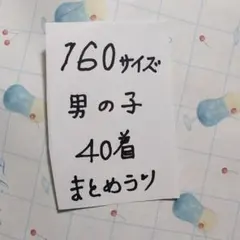 160サイズ
男の子
40着
まとめうり